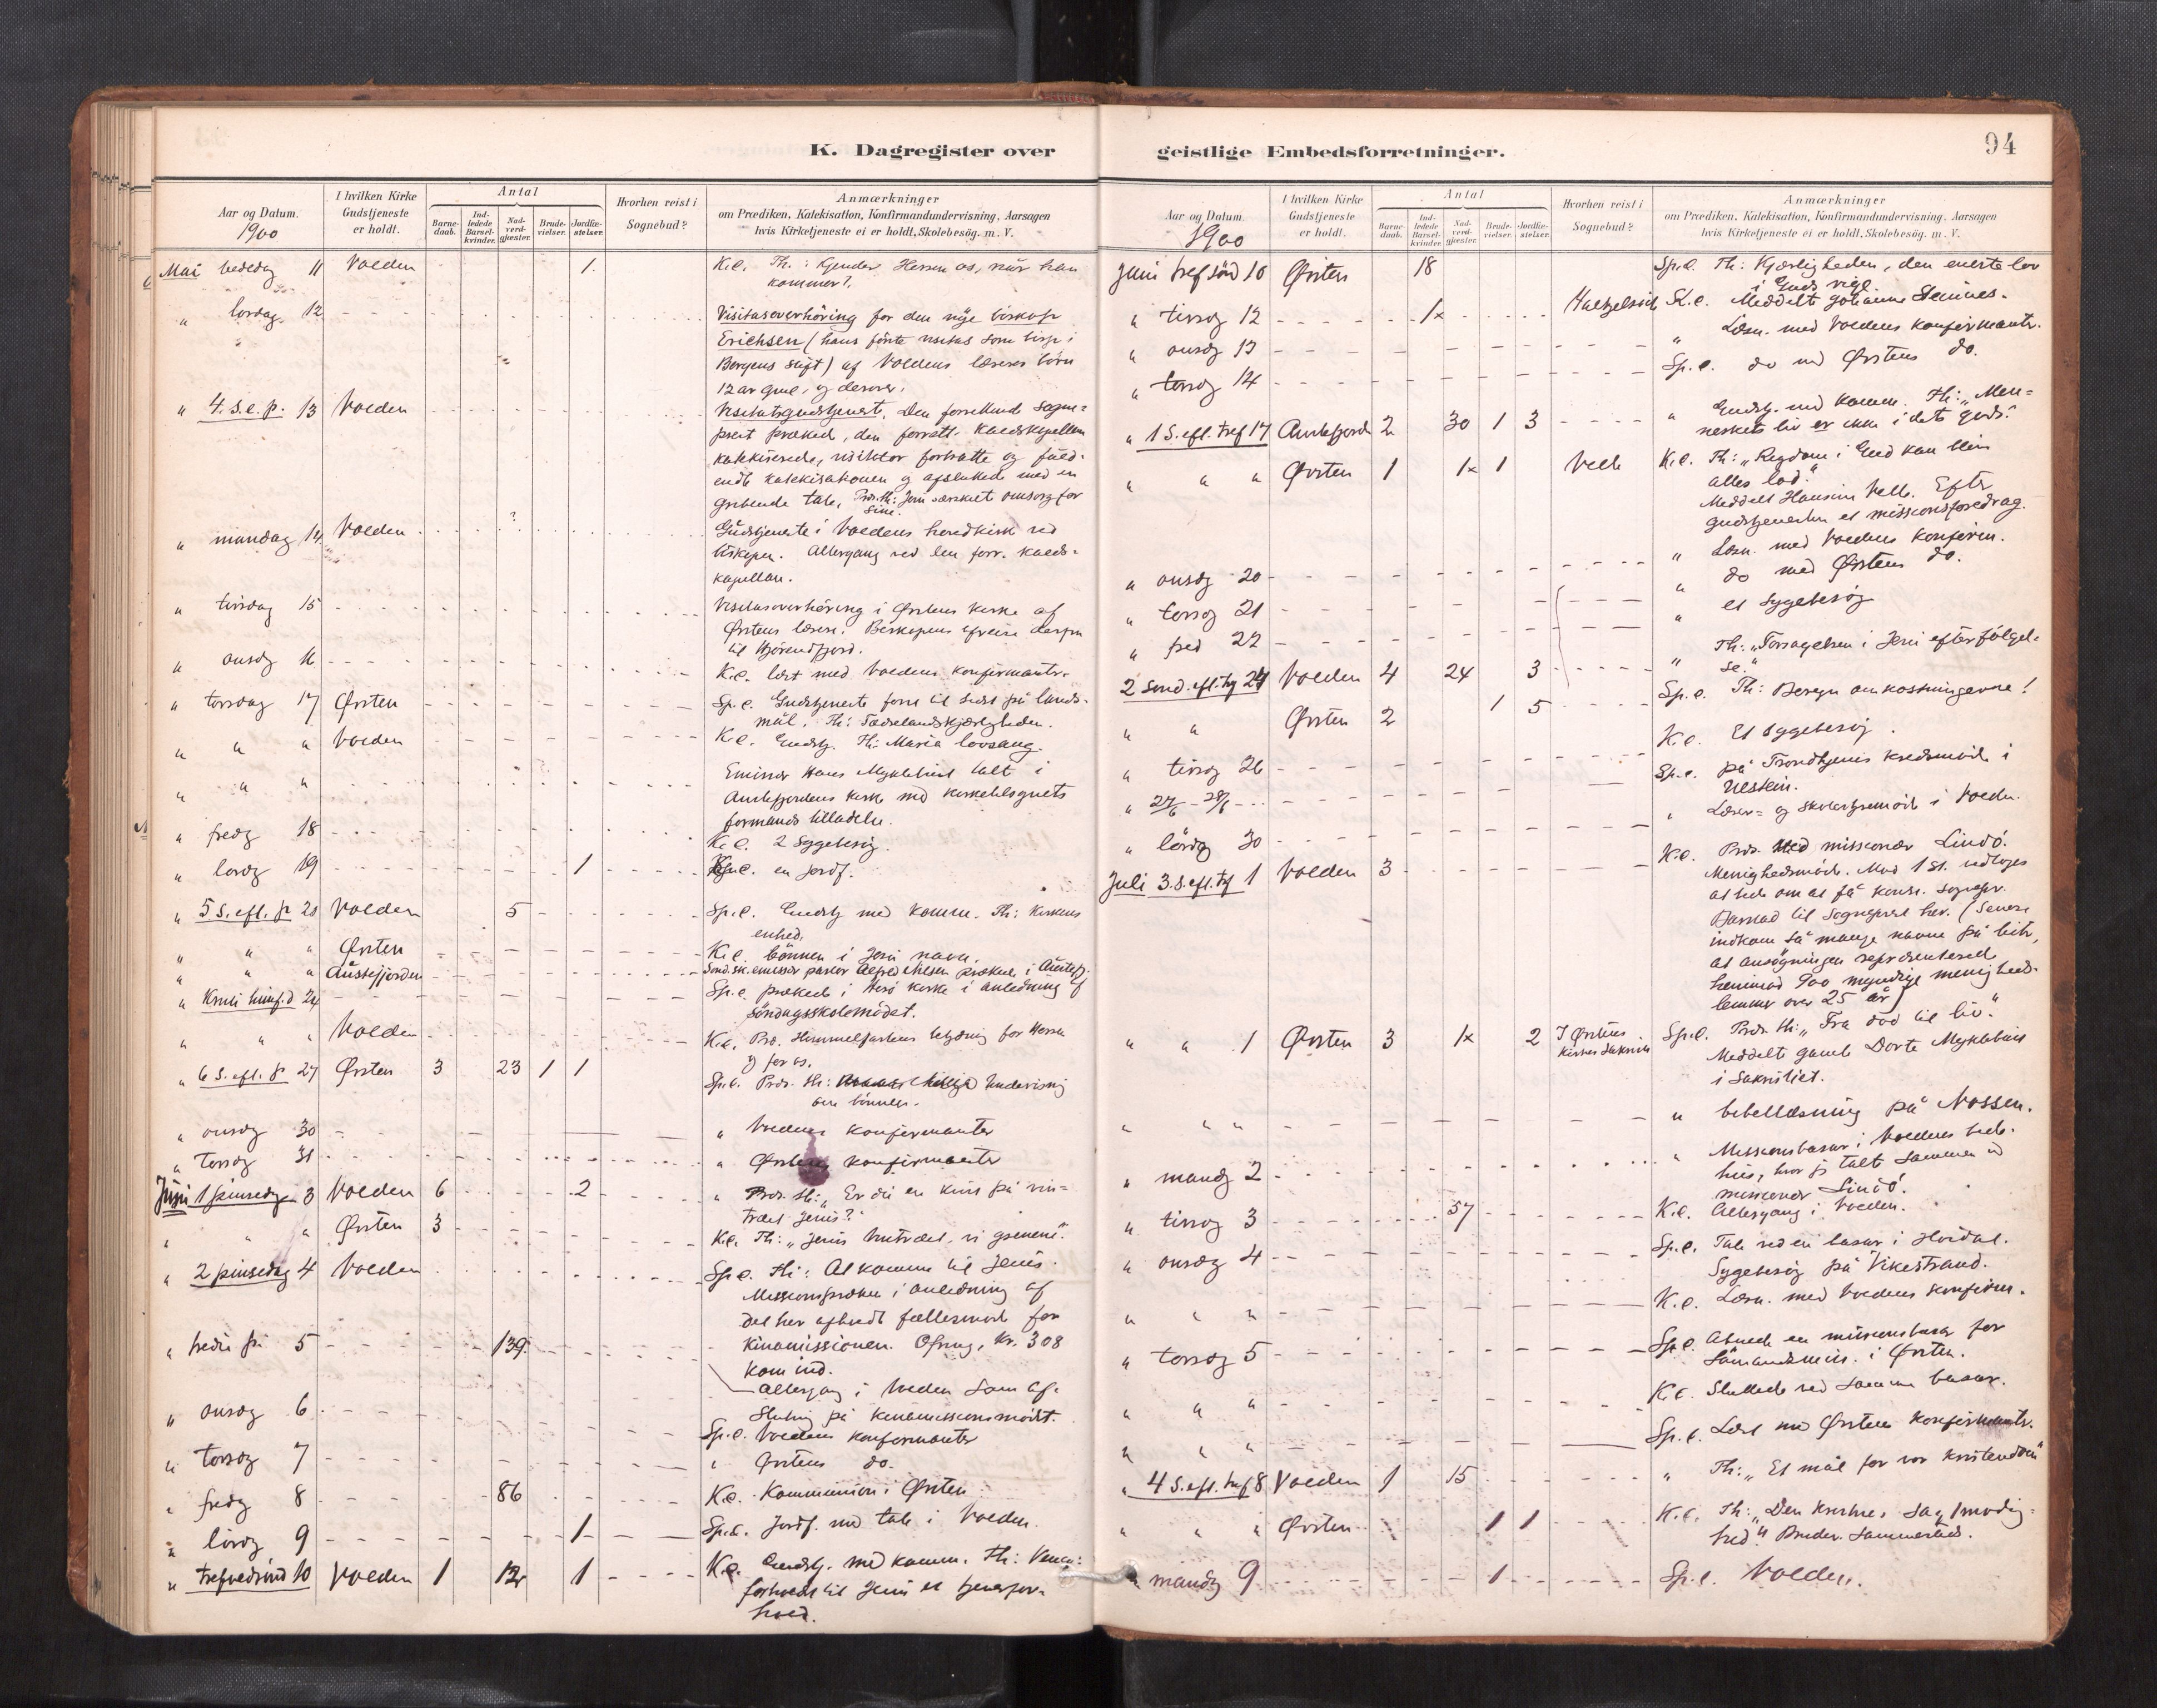 K. Dagregister over
Aar og Datum. 1900
I hvilken Kirke Gudstjeneste er holdt.
Antal
Barne-daab. Ind-ledede Barsel-kvinder. Nad-verd-gjæster. Brude-vielser. Jordfæ-stelser.
Hvorhen reist i Sognebud?
Anmærkninger
om Prædiken, Katekisation, Konfirmandundervisning, Aarsagen
hvis Kirketjeneste ei er holdt, Skolebesøg. m. V.
Mai bededag 11 Volden 1. K.c. Th.: Kjender Herren os, når han
kommer?
" lördag 12 Visitasoverhöring for den nye biskop
Erichsen (hans förste visitas som bisp i
Bergens stift) af Voldens læreres börn
12 ar gml. og derover.
" 4. S. e. p. 13 Volden Visitatsgudstjeneste. Den
prest præked, den
katekiserede, visitator fortsatte og fuld-
endte katekisationen og afsluttede med en
gribende tale. omsorg for
sine.
" mandag 14 Volden Gudstjeneste i Voldens hovedkirke ved
biskopen. Altergang ved den
kapellan.
" tirsdag 15 Visitasoverhöring i Örstens kirke af
Örstens lærere. Biskopens afreise derfra
til Hjörendfjord.
" onsdg 16 K.c. læst med Voldens konfirmanter.
" torsdag 17 Örsten Sp.c. Gudstjeneste på lands-
mål. Th: Fædrelandskjærligheden.
" " " Volden K.c. Gudstj. Th: Maria lovsang.
" " " Emissær Hans Myklebust talt i
Austefjordens kirke med kirketilsynets
formands tilladelse.
" fredg 18 K.c. 2 Sygebesög.
" lördg 19 1 en Jordf.
" 5 S. eft. p 20 Volden 5 Sp.c. Gudstj med komm. Th: Kirkens
enhed.
" " " Örsten K.c. bönnen i Jesu navn.
" " " Austefjorden pastor Alfred Nilsen præked i Austefj.
" Kristi himf.d 24 Sp.c. præked i Herö kirke i anledning af
söndagsskolemödet.
" " " Volden K.c. Præ. Himmelfartens betydning for Herren
og for os.
" 6 S. eft. p 27 Örsten 3 23 1 1 Sp.c. Præ. th: undervisning
om bönnen.
" onsdg 30 " Voldens konfirmanter
" Torsdg 31 " Örstens konfirmanter
Juni 1 pinsedg 3 Volden 6 2 " Præ. th: "Er du en kvis på vin-
træet Jesus?"
" " Örsten 3 K.c. Th: "Jesus vintræet, vi grenene".
" 2 pinsedag 4 Volden Sp.c. Th: At komme til Jesus.
Missionspræken i anledning af
det her afholdt fællesmöde for
Kinamissionen. Ofring. Kr. 308
kom ind.
" tredie pi 5 139 Altergang i Volden som af-
slutning på kinamissionsmödet.
" onsdg 6 Sp.c. Voldens konfirmanter
" torsdg 7 " Örstens do.
" fredg 8 86 K.c. Kommunion i Örsten
" lördg 9 1 Sp.c. Jordf. med tale i Volden.
" trefoldsönd 10 Volden 1 12 1 K.c. Gudstj. med komm. Th:
forhold til Jesus et
hold.
geistlige Embedsforretninger.
94
Aar og Datum 1900
I hvilken Kirke Gudstjeneste er holdt.
Antal
Barne-daab. Ind-ledede Barsel-kvinder. Nad-verd-gjæster. Brude-vielser. Jordfæ-stelser.
Hvorhen reist i Sognebud?
Anmærkninger
om Prædiken, Katekisation, Konfirmandundervisning. Aarsagen
hvis Kirketjeneste ei er holdt, Skolebesøg. m. V.
Juni tref sönd 10 Örsten 18 Sp.c. Th: Kjærligheden, den eneste lov
i Guds rige.
" tirsdg 12 1x K.c. Meddelt Johanne
" onsdg 13 " Læsn. med Voldens konfirmantr.
" torsdg 14 Sp.c. do med Örstens do.
" 1 S. eft. tref 17 Austefjord 2 30 1 3 " Gudstj. med komm. Th: "Men-
neskets liv er ikke i dets gods."
" " " Örsten 1 1x 1 Velle K.c. Th: "Rigdom i Gud kan blive
alles lod."
Meddelt Hansine Velle. Efter
gudstjenesten et missionsforedrag.
" onsdg 20 " Læsn. med Voldens konfirm.
" torsdg 21 " do med Örstens do.
" fred 22 " et Sygebesög
2 Sönd. eft. tr 24 Volden 4 24 3 " Th: "Forsagelsen i Jesu efterfölgel-
se."
" " Örsten 2 1 5 Sp.c. Th: Beregn omkostningerne!
" tirsdg 26 K.c. Et Sygebesög.
" 27/6 - 28/6 Sp.c. på Trondhjems kredsmöde i
Ulstein.
" lördg 30 " Lærer- og skolestyremöde i Volden.
Juli 3. S. eft. tref 1 Volden 3 K.c. Præ. Med missionær Lindö.
Menighedsmöde. Mod 1 st. vedtoges
at bede om at få
Barstad til Sogneprest her. (Senere
indkom så mange navne på liste,
at ansögningen repræsenterede
900 myndige menigheds-
lemmer over 25 år)
" " 1 Örsten 3 1x 2 I Örstens kirkes Sakristi Sp.c. Præ. th: "Fra död til liv."
Meddelt gamle Dorte Myklebust
i Sakristiet.
" " " " bibellæsning på Mossen.
" mandg 2 " Missionsbasar i Voldens bede-
hus, hvor jeg talte sammen med
missionær Lindö.
" tirsdg 3 57 K.c. Altergang i Volden.
" onsdg 4 Sp.c. Tale ved en basar i Hovdal.
Sygebesög på Vikestrand.
" " " K.c. Læsn. med Voldens konfirm.
" torsdg 5 Sp.c. en missionsbasar for
Sömandsmiss. i Örsten.
" " " K.c. Sluttede ved samme basar.
" " " Sp.c. Læst med Örstens konfirmantr.
" 4 S. eft. tref 8 Volden 1 15 " Th: "Et mål for vor kristendom"
" " " Örsten 1 1 K.c. Th: "Den kristnes sagtmodig-
hed."
" mandg 9 1 Sp.c. Volden.